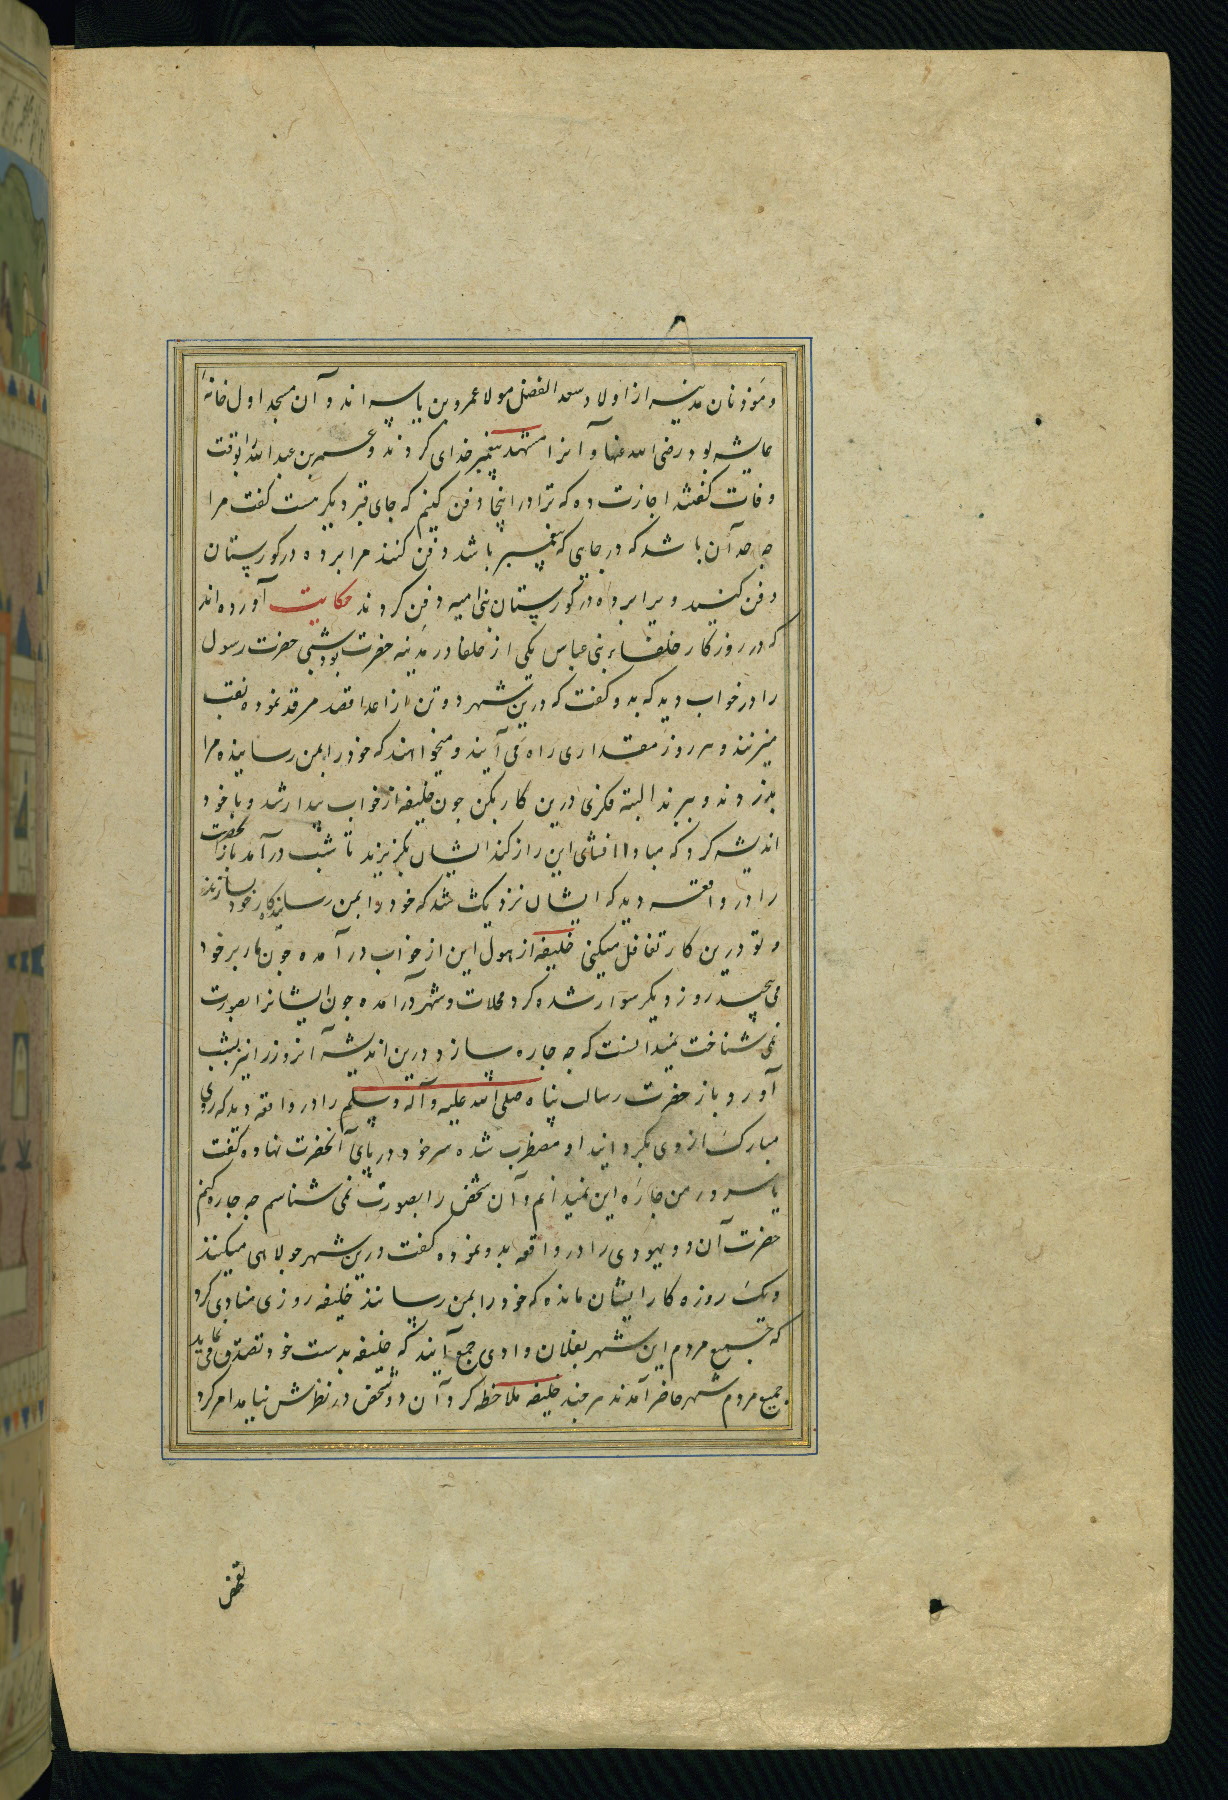 و مؤذنان مدینه از اولاد سعد الفضل مولا عمرو بن یاسر اند و آن مسجد اول خانهٔ
عایشه بود رضی الله عنها و آنرا مشهد پیغمبر خدای کردند و عمر بن عبد الله را بوقت
وفات کفتند اجازت ده که ترا در اینجا دفن کنیم که جای قبر دیکر هست کفت مرا
چه حد آن باشد که در جایی که پیغمبر باشد دفن کنند مرا برده در کورستان
دفن کنید ویرا برده در کورستان بنی امیه دفن کردند حکایت آورده اند
که در روزکار خلفاء بنی عباس یکی از خلفا در مدینه حضرت بود شبی حضرت رسول
را در خواب دید که بدو کفت که درین شهر دو تن از اعدا قصد مرقد نموده نقب
میزنند و هر روز مقداری راه می آیند و میخواهند که خود را بمن رسانیده مرا
بدزدند و ببرند البته فکری درین کار بکن چون خلیفه از خواب بیدار شد و با خود
اندیشه کرد که مبادا افشای این راز کند ایشان بکریزند تا شب درآمد باز آنحضرت
را در واقعه دید که ایشان نزدیک شد که خود را بمن رسانند کار خود بسازند
و تو درین کار تغافل میکنی خلیفه از هول این از خواب در آمده چون مار بر خود
می پیچید روز دیکر سوار شده کرد محلات و شهر درآمده چون ایشانرا بصورت
نمی شناخت نمیدانست که چه چاره سازد درین اندیشه آنروز را نیز بشب
آورد باز حضرت رسالت پناه صلی الله علیه و آله و سلم را در واقعه دید که روی
مبارک از وی بکردانید او مضطرب شده سر خود در پای آنحضرت نهاده کفت
یا سرور من چاره این نمیدانم و آن شخص را بصورت نمی شناسم چه چاره کنم
حضرت آن دو یهودی را در واقعه بدو نموده کفت درین شهر جولاهی میکنند
و یک روزه کار ایشان مانده که خود را بمن رسانند خلیفه روزی منادی کرد
که جمیع مردم این شهر بفلان وادی جمع آیند که خلیفه بدست خود تصدق می نماید
جمیع مردم شهر حاضر آمدند هر چند خلیفه ملاحظه کرد آن دو شخص در نظرش نیامد امر کرد
تفحص